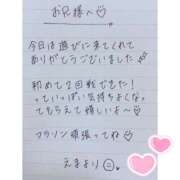 お兄様へ♡
今日は遊びに来てくれて
ありがとうございました
初めて2回戦できた!
っていっぱい気持ちよくなっ
てもらえて嬉しいよ〜
マラソン頑張ってね♡
えまより